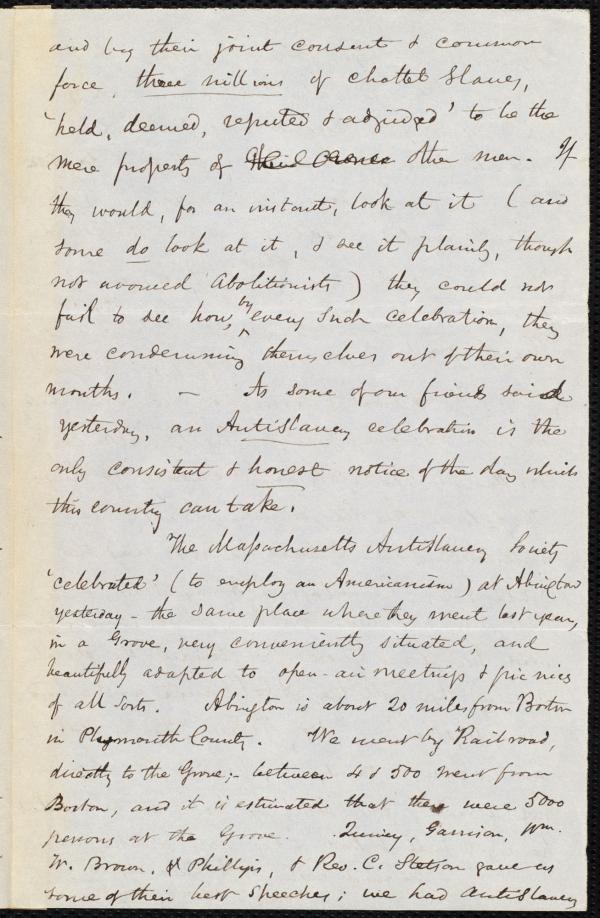 and by their joint consent & common
force, three millions of chattel slaves,
'held, deemed, reputed & adjudged' to be the
mere property of other men. If
they would, for an instant, look at it (and
some do look at it, & see it plainly, though
not avowed Abolitionists) they could not
fail to see how, by every such celebration, they
were condemning themselves out of their own
mouths. — As some of our friends said
yesterday, an Antislavery celebration is the
only consistent & honest notice of the day which
this country can take.
The Massachusetts Antislavery Society
'celebrated' (to employ an Americanism) at Abington
yesterday - the same place where they went last year,
in a Grove, very conveniently situated, and
beautifully adapted to open-air meetings & pic nics
of all sorts. Abington is about 20 miles from Boston
in Plymouth County. We went by Railroad,
directly to the Grove; - between 4 & 500 went from
Boston, and it is estimated that there were 5000
persons at the Grove. Quincy, Garrison, Wm.
W. Brown, Phillips, & Rev. C. Stetson gave us
some of their best speeches; we had antislavery